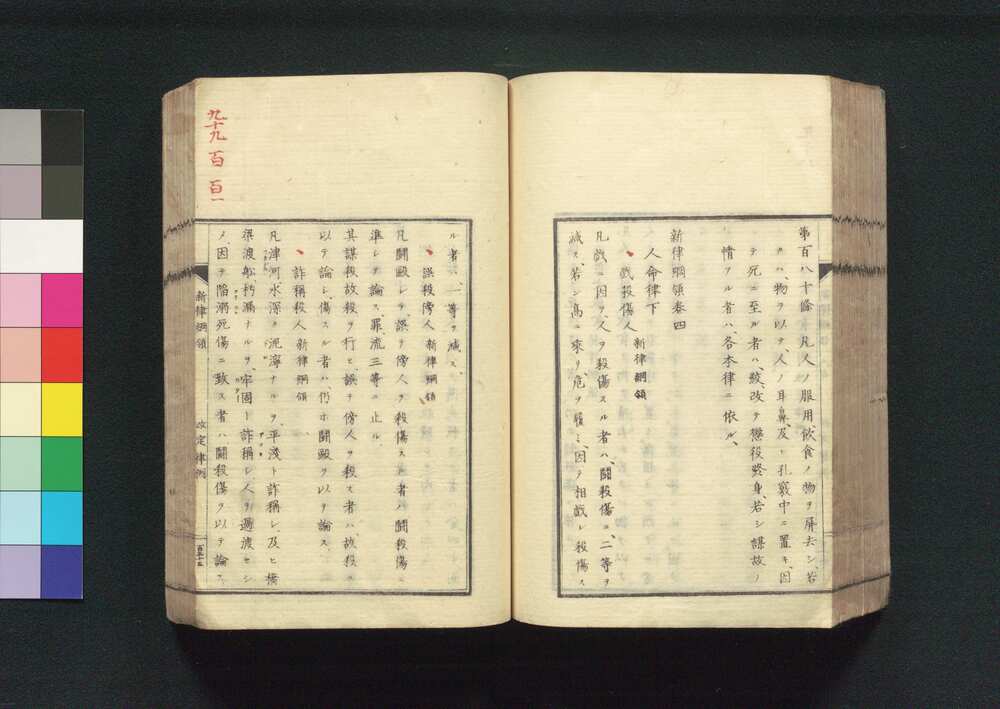 第百八十條 凡人ノ服用飲食ノ物ヲ屏去シ、若
クハ、物ヲ以テ、人ノ耳鼻、及ヒ孔竅中ニ置キ、因
テ死ニ至ル者ハ、絞、改テ懲役終身、若シ謀故ノ
情アル者ハ、各本律ニ依ル、
新律綱領卷四
人命律下
戲殺傷人 新律綱領
凡戲ニ因テ、人ヲ殺傷スル者ハ、鬪殺傷ニ、二等ヲ
減ス、若シ高ニ乘リ、危ヲ履ミ、因テ相戲レ殺傷ス
ル者ハ、一等ヲ減ス、
誤殺傍人 新律綱領
凡鬪毆シテ、誤テ傍人ヲ殺傷スル者ハ、鬪殺傷ニ
準シテ論ス、罪、流三等ニ止ル、
其謀殺故殺ヲ行ヒ、誤テ傍人ヲ殺ス者ハ、故殺ヲ
以テ論シ、傷スル者ハ、仍ホ鬪毆ヲ以テ論ス、
詐稱殺人 新律綱領
凡津河、水深ク泥濘ナルヲ、平淺ト詐稱シ、及ヒ橋
梁渡船、朽漏ナルヲ、牢固ト詐稱シ、人ヲ過渡セシ
メ、因テ陷溺死傷ニ致ス者ハ、鬪殺傷ヲ以テ論ス、
新律綱領 改定律例
九十九 百 百一